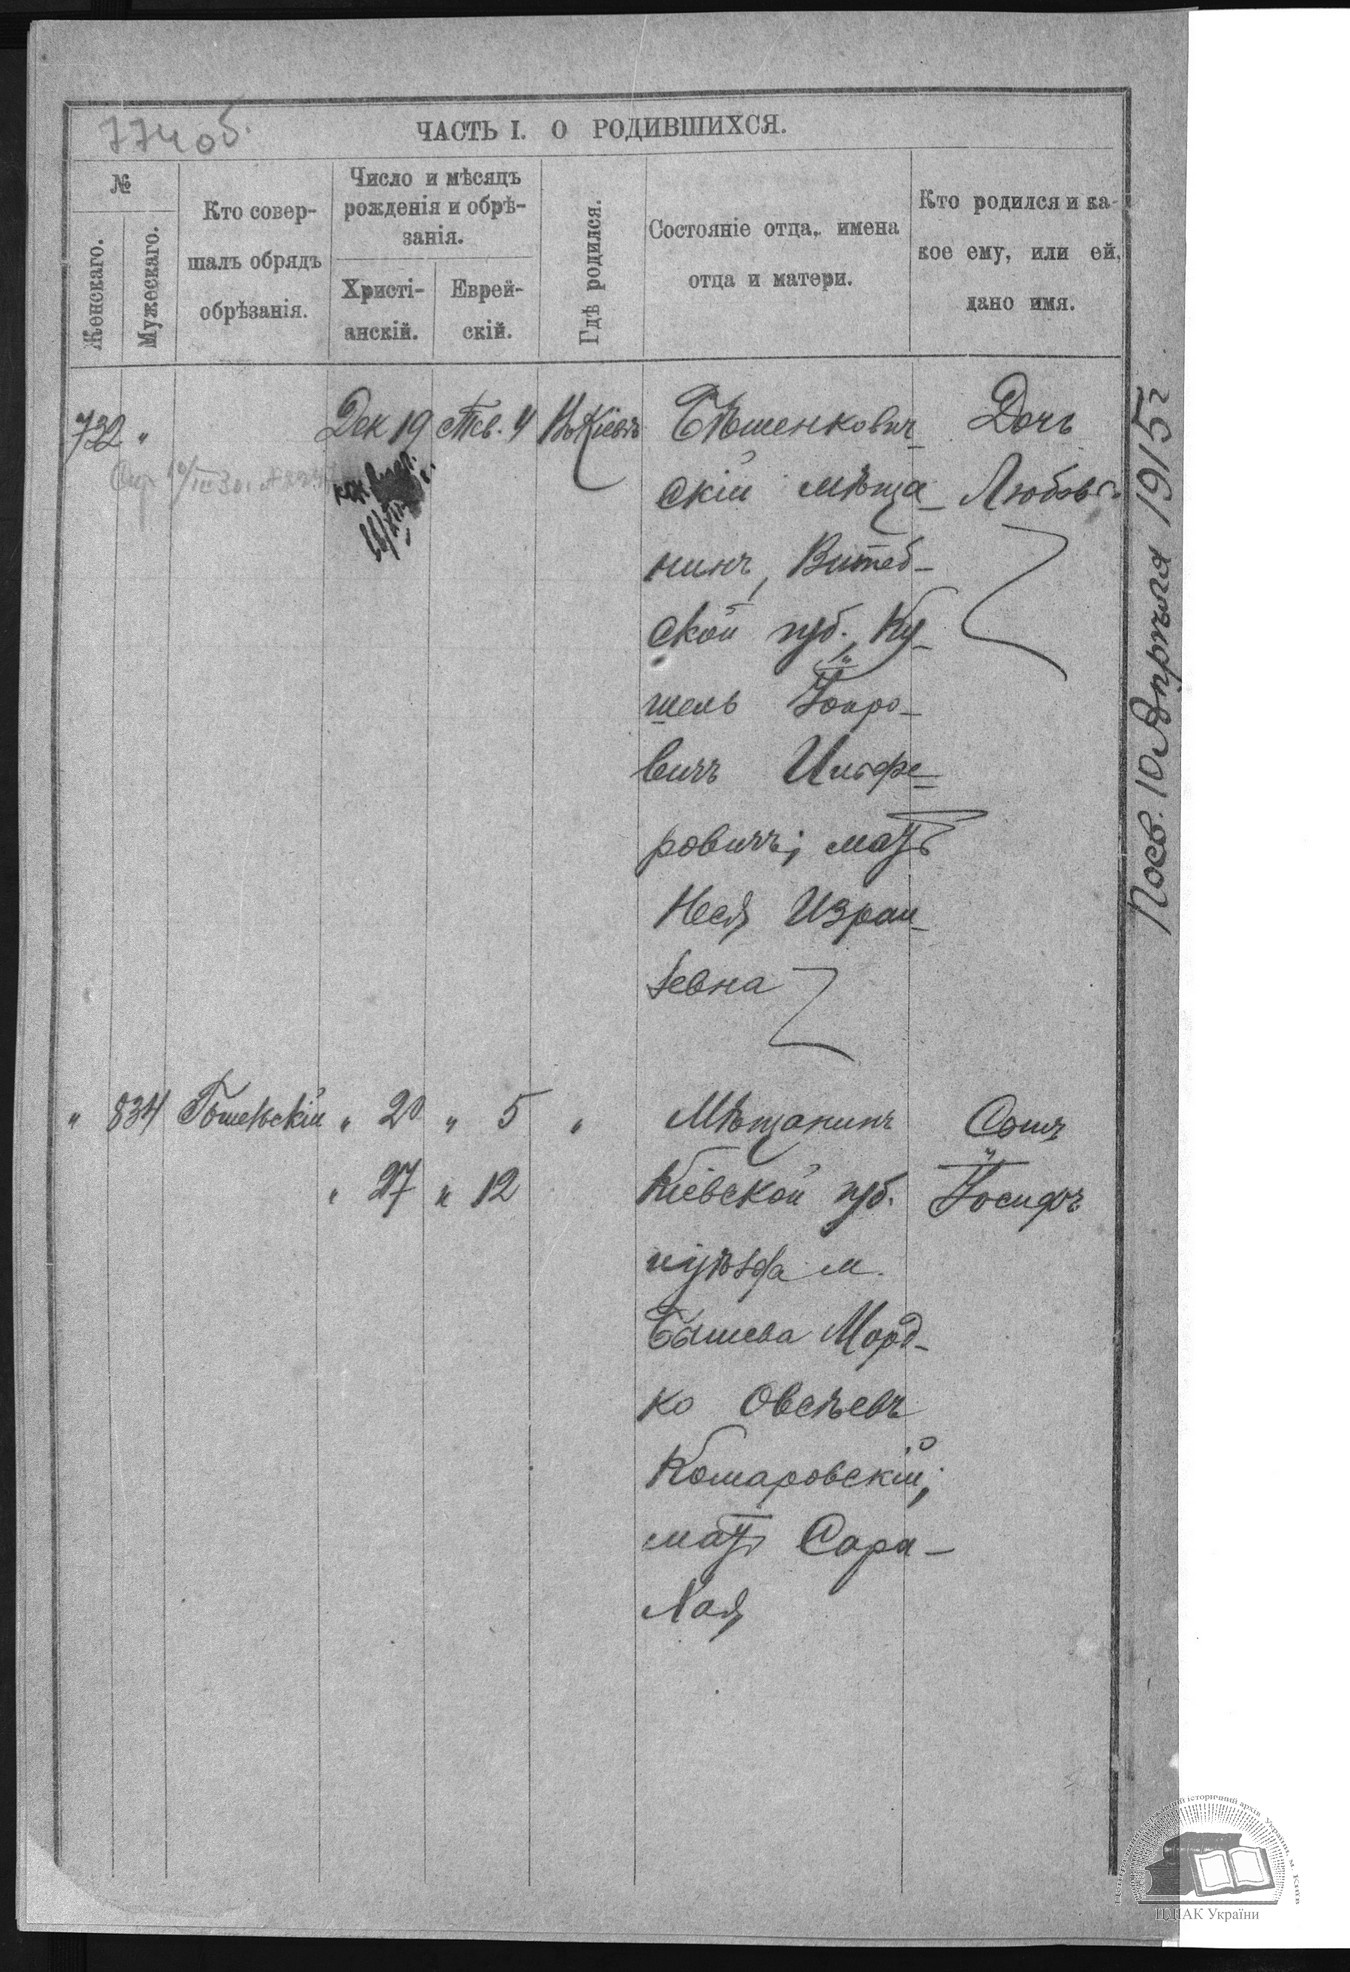 774 об.
ЧАСТЬ I. О РОДИВШИХСЯ.
№
Женскаго.
Мужескаго.
Кто совер-
шалъ обрядъ
обрѣзанія.
Число и мѣсяцъ
рожденія и обрѣ-
занія.
Христі-
анскій.
Еврей-
скій.
Гдѣ родился.
Состояніе отца, имена
отца и матери.
Кто родился и ка-
кое ему, или ей,
дано имя.
732 " Дек 19 Тев. 4 Въ Кіевѣ
Бѣшенкович-
скій мѣща-
нинъ, Витеб-
ской губ., Ку-
шель
вичъ
ровичъ; мать
Неся Израи-
левна
Дочь
Любовь
" 834 " 20 " 5 "
" 27 " 12
Мѣщанинъ
Кіевской губ.
м.
Бышева Морд-
ко Овсѣевъ
Комаровскій;
мать Сара-
Хая
Сынъ
Іосифъ
10 Апрѣля 1915 г
ЦДІАК України